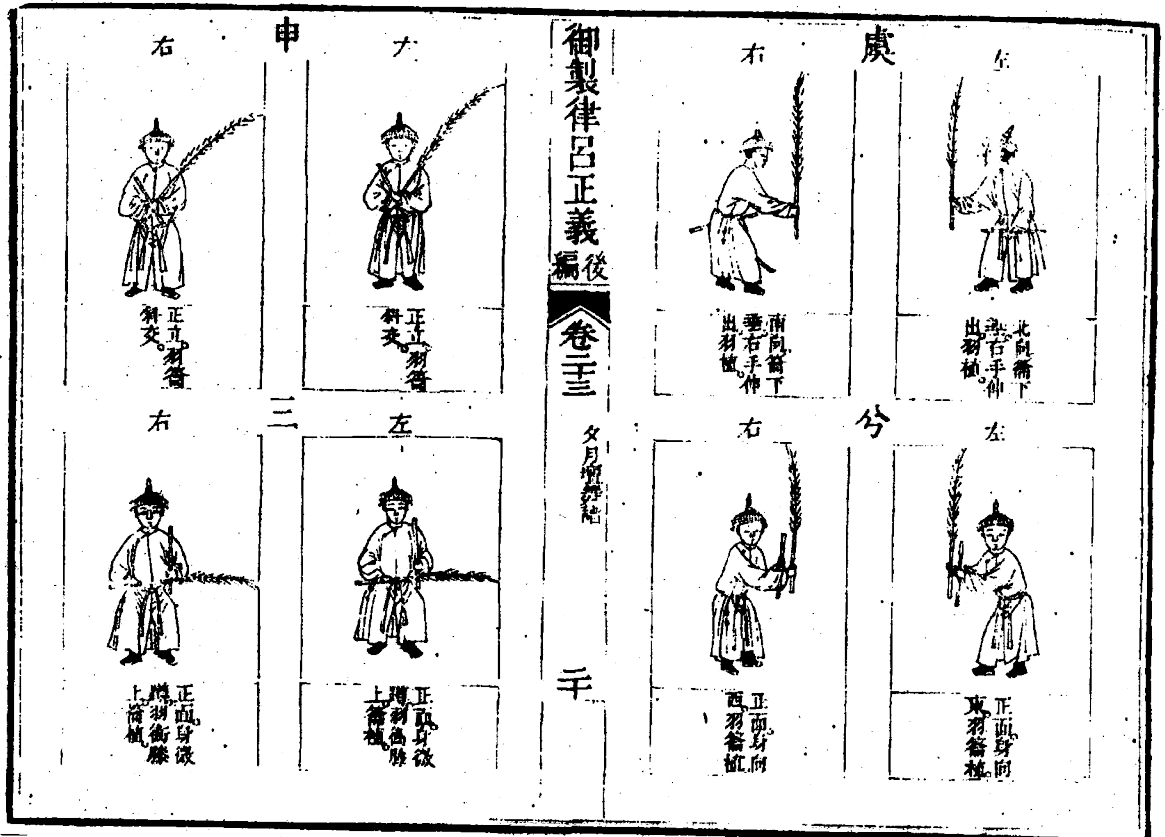 虔
左
北向籥下
垂右手伸
出羽植。
右
南向籥下
垂右手伸
出羽植。
兮
左
正面身向
東羽籥植。
右
正面身向
西羽籥植。
御製律呂正義後編
卷二十三
夕月壇舞譜
二十
申
左
正立。羽籥
斜交。
右
正立。羽籥
斜交。
三
左
正面。身微
蹲羽衡膝
上籥植。
右
正面。身微
蹲羽衡膝
上籥植。